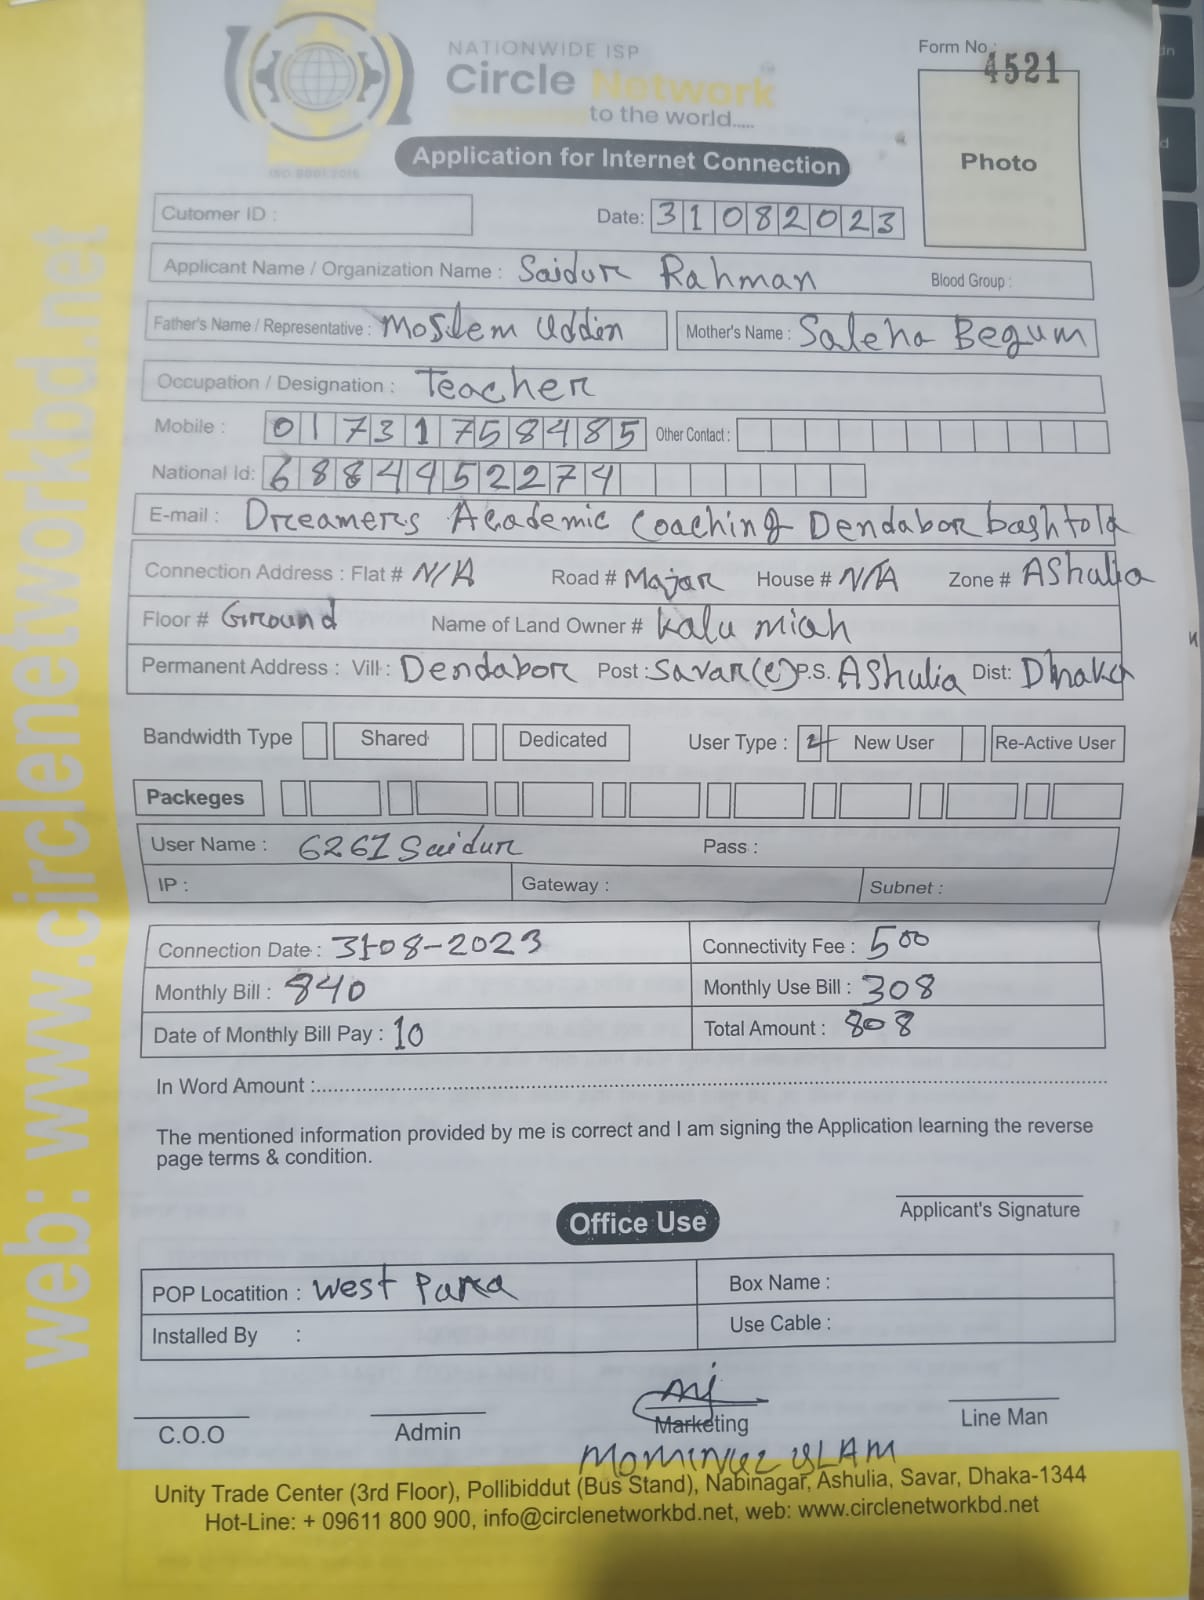 NATIONWIDE ISP
Circle Network
to the world.....
ISO 9001:2015
Form No.: 4521
Photo
Application for Internet Connection
Cutomer ID :
Date: 31082023
Applicant Name / Organization Name : Saidur Rahman Blood Group :
Father's Name / Representative : Moslem Uddin Mother's Name : Saleha Begum
Occupation / Designation : Teacher
Mobile : 01731758485 Other Contact :
National Id: 6884452274
E-mail : Dreamers Academic Coaching Dendabor bashtola
Connection Address : Flat # N/A Road # Majar House # N/A Zone # Ashulia
Floor # Ground Name of Land Owner # Kalu miah
Permanent Address : Vill : Dendabor Post : Savar(c) P.S. Ashulia Dist: Dhaka
Bandwidth Type Shared Dedicated User Type : New User Re-Active User
Packeges
User Name : 6261Saidur Pass :
IP : Gateway : Subnet :
Connection Date : 31-08-2023 Connectivity Fee : 500
Monthly Bill : 840 Monthly Use Bill : 308
Date of Monthly Bill Pay : 10 Total Amount : 808
In Word Amount :
The mentioned information provided by me is correct and I am signing the Application learning the reverse
page terms & condition.
Applicant's Signature
Office Use
POP Locatition : West Para Box Name :
Installed By : Use Cable :
C.O.O Admin Marketing Line Man
MOMINUL ISLAM
Unity Trade Center (3rd Floor), Pollibiddut (Bus Stand), Nabinagar, Ashulia, Savar, Dhaka-1344
Hot-Line: + 09611 800 900, info@circlenetworkbd.net, web: www.circlenetworkbd.net
web: www.circlenetworkbd.net